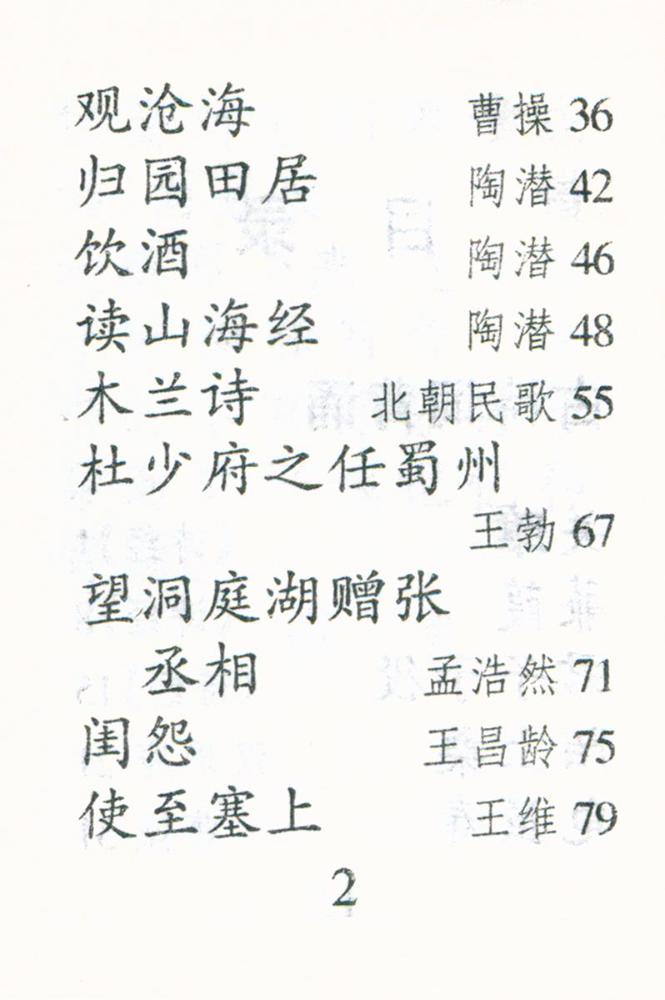 观沧海 曹操 36
归园田居 陶潜 42
饮酒 陶潜 46
读山海经 陶潜 48
木兰诗 北朝民歌 55
杜少府之任蜀州
王勃 67
望洞庭湖赠张
丞相 孟浩然 71
闺怨 王昌龄 75
使至塞上 王维 79
2